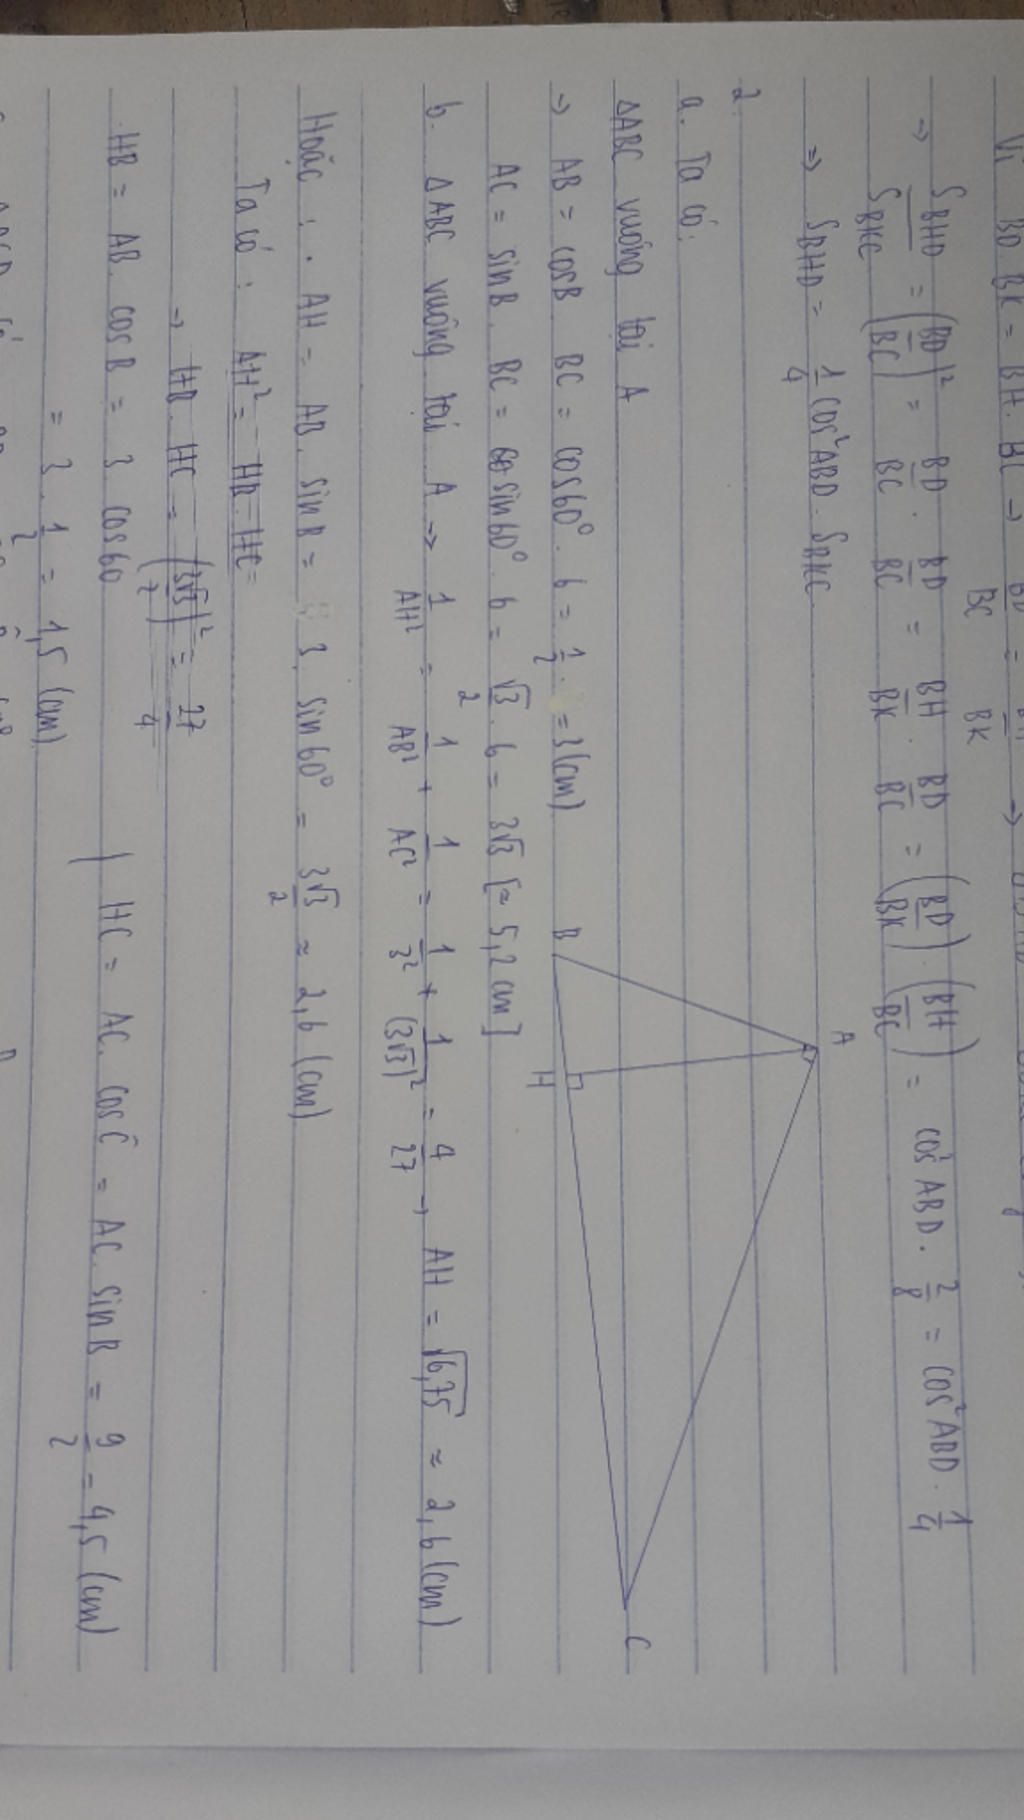 Vì BD. BK = BH. BC →
→ S_BHD / S_BKC = (BD/BC)² = BD/BC . BD/BC = BH/BK . BD/BC = (BD/BK) . (BH/BC) = cos²ABD . 2/8 = cos²ABD . 1/4
⇒ S_BHD = 1/4 cos²ABD . S_BKC
2.
A
a. Ta có:
ΔABC vuông tại A
C
→ AB = cosB . BC = cos60° . 6 = 1/2 . = 3(cm)
B
H
AC = sinB . BC = sin60° . 6 = √3/2 . 6 = 3√3 [≈ 5,2 cm]
b. ΔABC vuông tại A → 1/AH² = 1/AB² + 1/AC² = 1/3² + 1/(3√3)² = 4/27 → AH = √6,75 ≈ 2,6 (cm)
Hoặc : . AH = AB. sinB = 3. sin60° = 3√3/2 ≈ 2,6 (cm)
Ta có : AH² = HB. HC =
→ HB. HC = (3√3/2)² = 27/4
HB = AB. cosB = 3. cos60 | HC = AC. cosĈ = AC. sinB = 9/2 = 4,5 (cm)
= 3 . 1/2 = 1,5 (cm)